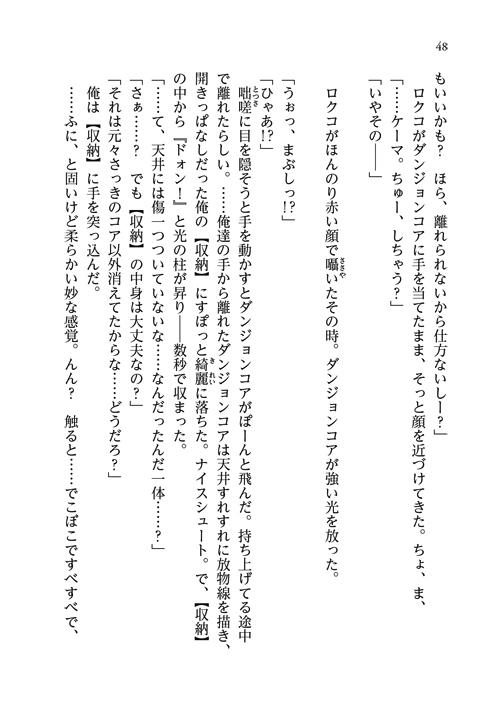 48
もいいかも？　ほら、離れられないから仕方ないしー？」
　ロクコがダンジョンコアに手を当てたまま、そっと顔を近づけてきた。ちょ、ま、
「……ケーマ。ちゅー、しちゃう？」
「いやその――」
　ロクコがほんのり赤い顔で囁いたその時。ダンジョンコアが強い光を放った。
「うぉっ、まぶしっ!?」
「ひゃあ!?」
　咄嗟に目を隠そうと手を動かすとダンジョンコアがぽーんと飛んだ。持ち上げてる途中
で離れたらしい。……俺達の手から離れたダンジョンコアは天井すれすれに放物線を描き、
開きっぱなしだった俺の【収納】にすぽっと綺麗に落ちた。ナイスシュート。で、【収納】
の中から『ドォン！』と光の柱が昇り――数秒で収まった。
「……て、天井には傷一つついていないな……なんだったんだ一体……？」
「さぁ……？　でも【収納】の中身は大丈夫なの？」
「それは元々さっきのコア以外消えてたからな……どうだろ？」
　俺は【収納】に手を突っ込んだ。
　……ふに、と固いけど柔らかい妙な感覚。んん？　触ると……でこぼこですべすべで、